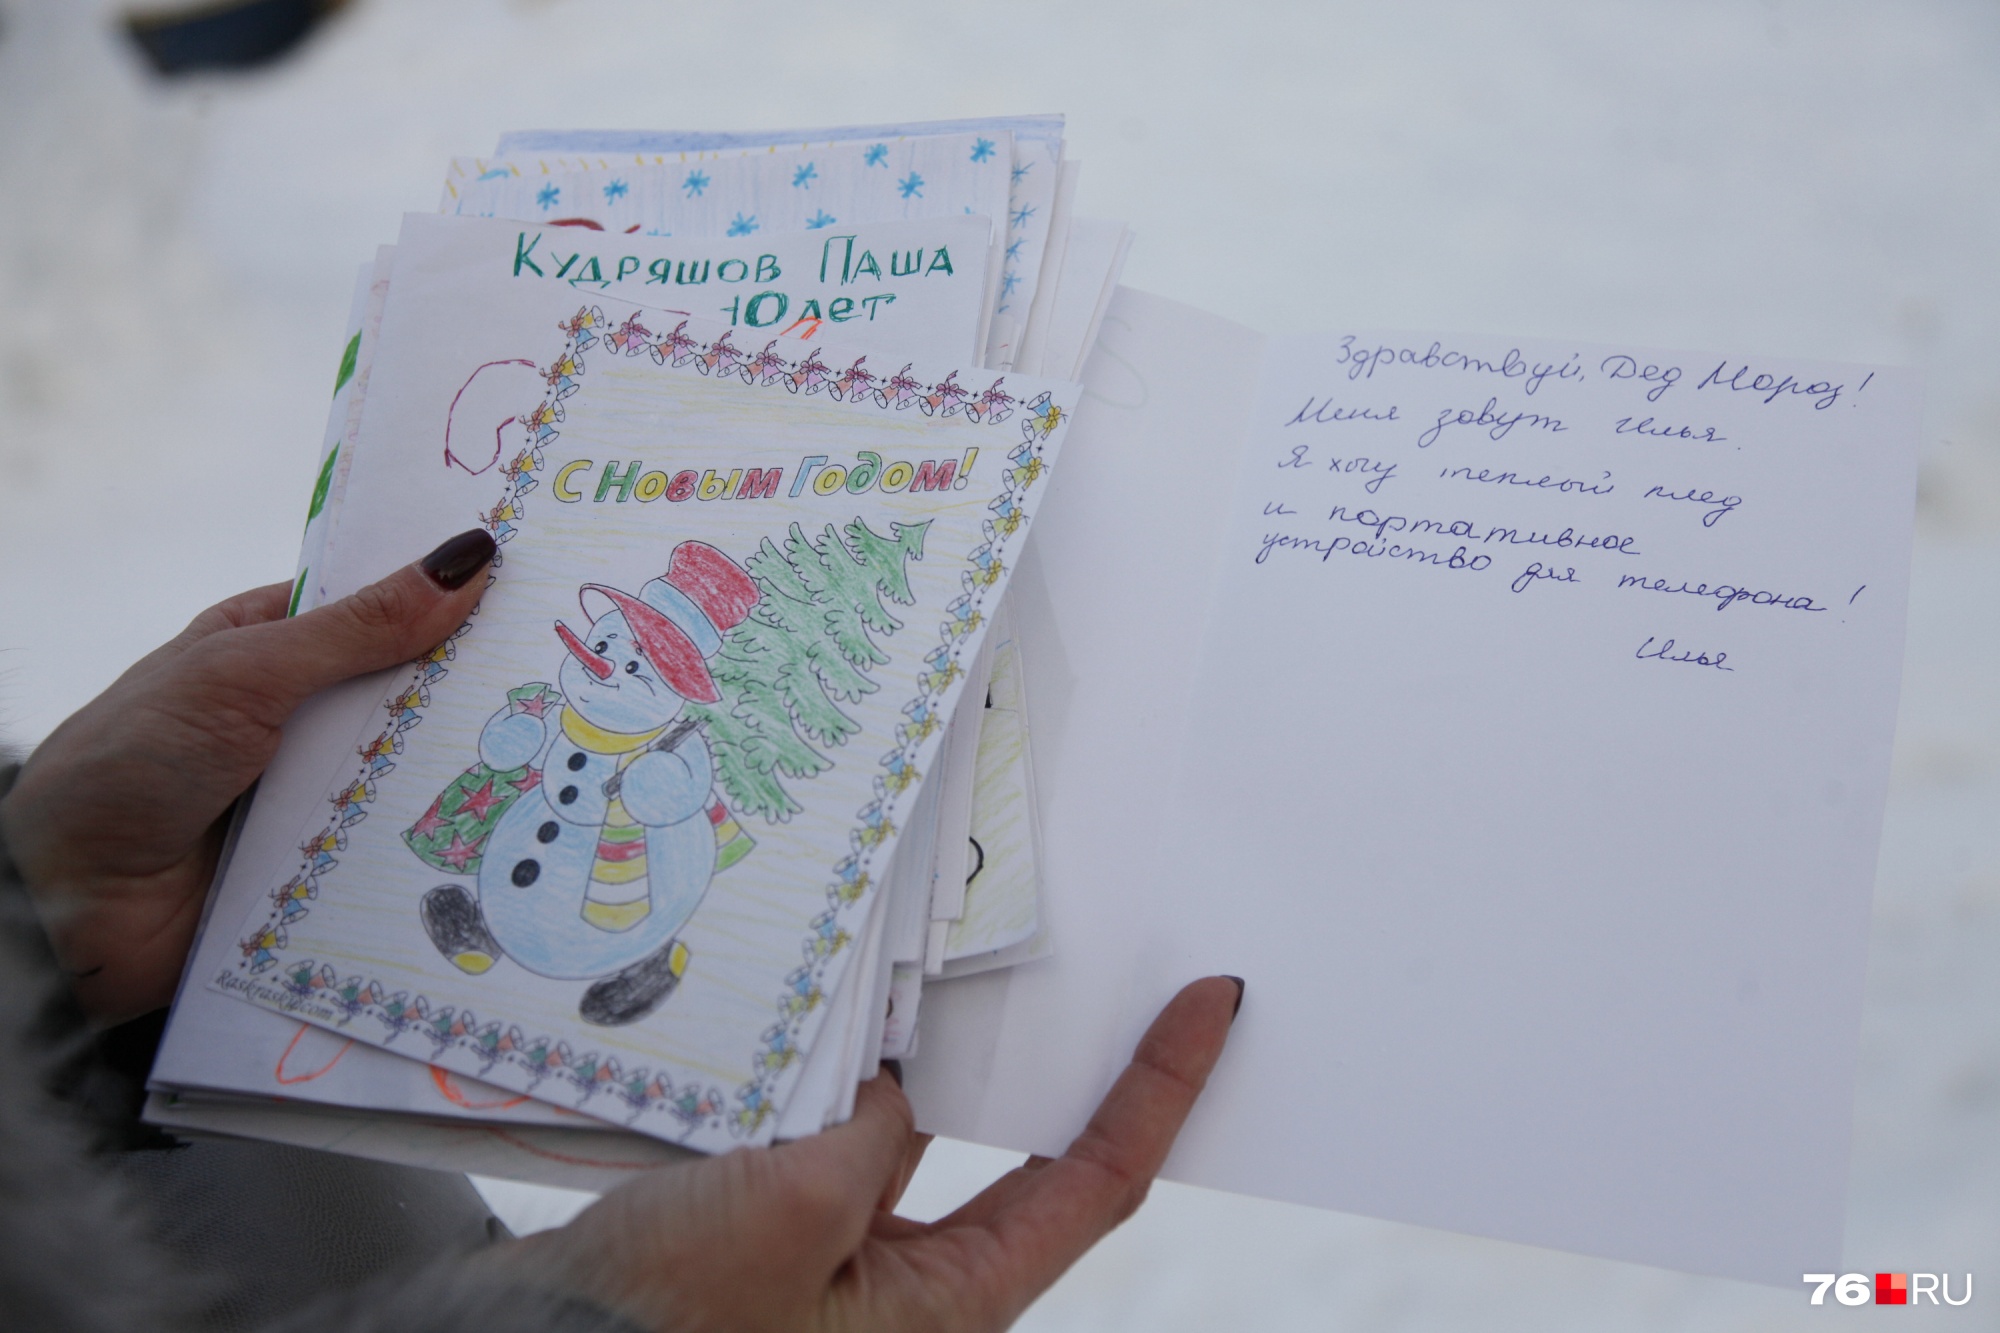 Кудряшов Паша
10 лет
С Новым Годом!
Raskrasky.com
Здравствуй, Дед Мороз!
Меня зовут Илья.
Я хочу теплый плед
и портативное
устройство для телефона!
Илья
76.RU